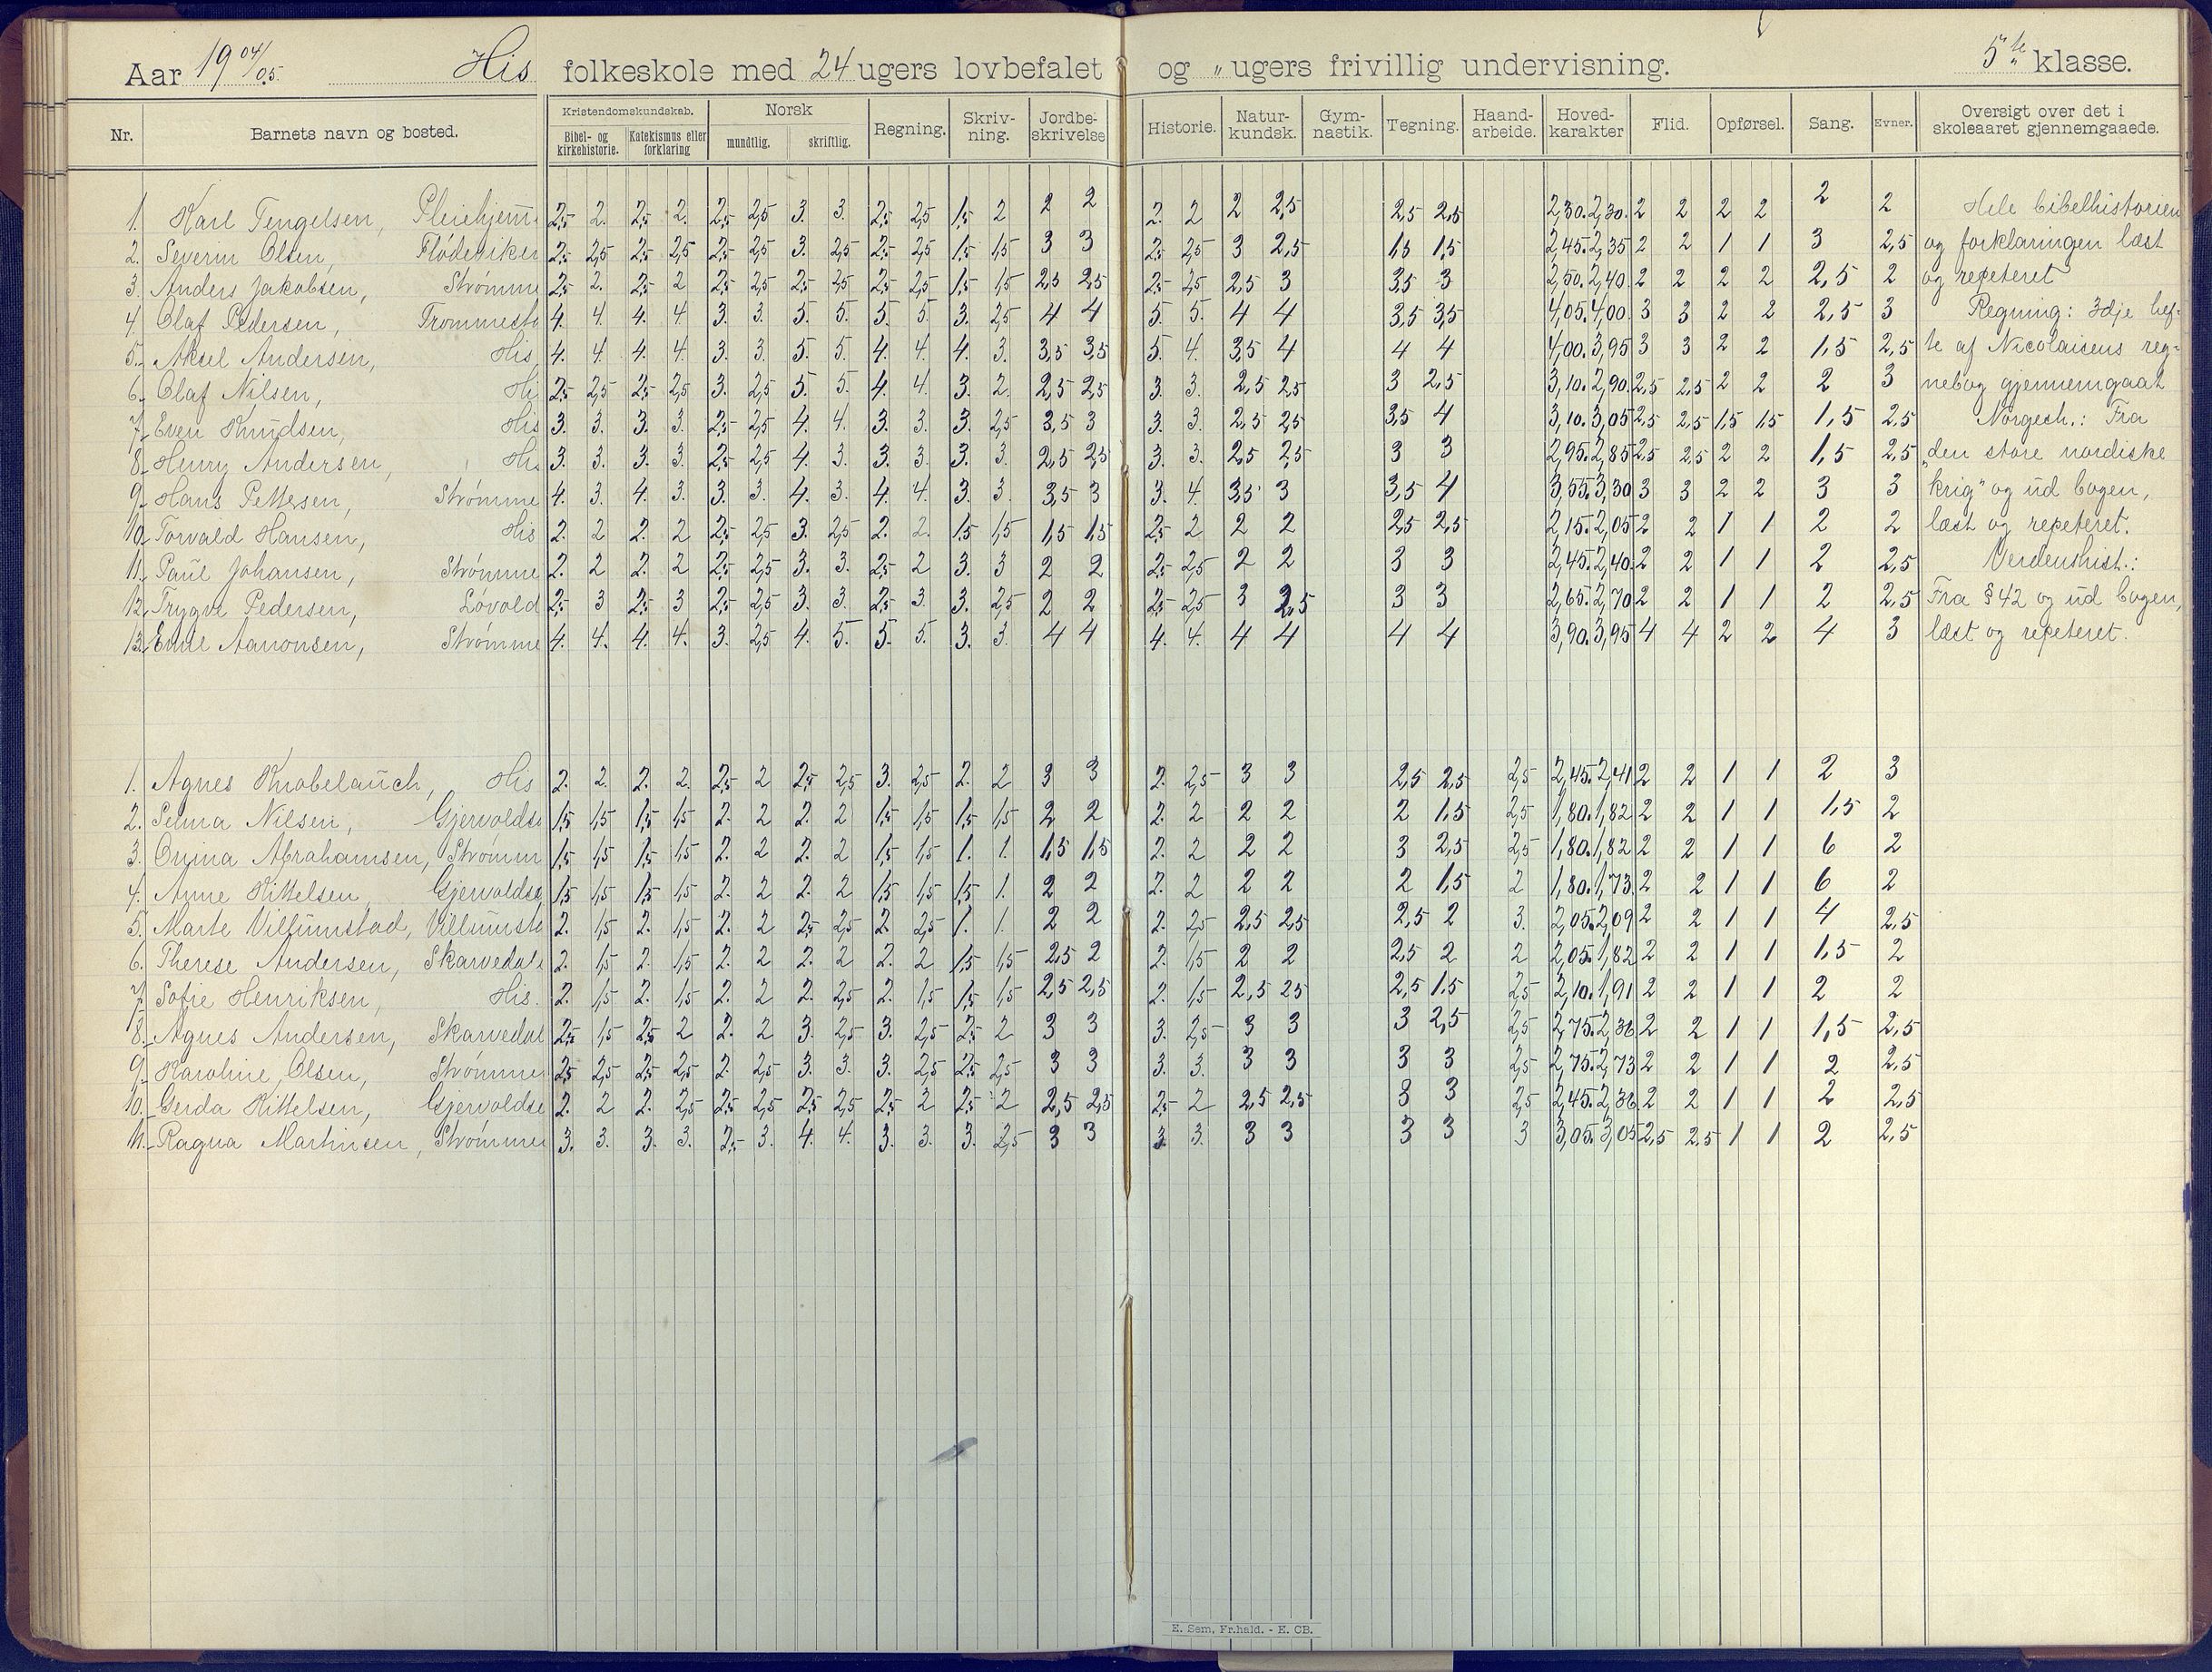 Aar 19 04/05. His folkeskole med 24 ugers lovbefalet og " ugers frivillig undervisning. 5te klasse.
Nr. Barnets navn og bosted. Kristendomskundskab. Norsk Regning. Skriv-ning. Jordbe-skrivelse Historie. Natur-kundsk. Gym-nastik. Tegning. Haand-arbeide. Hoved-karakter Flid. Opførsel. Sang. Evner. Oversigt over det i skoleaaret gjennemgaaede.
Bibel- og kirkehistorie. Katekismus eller forklaring mundtlig. skriftlig.
1. Karl Tengelsen, Pleiehjem 2,5 2. 2,5 2. 2,5 2,5 3. 3. 2,5 2,5 1,5 2 2 2 2. 2 2 2,5 2,5 2,5 2,30. 2,30. 2 2 2 2 2 2 Hele bibelhistorien
2. Severin Olsen, Flødeviken 2,5 2,5 2,5 2,5 2,5 2,5 3. 2,5 2,5 2,5 1,5 1,5 3 3 2,5 2,5 3 2,5 1,5 1,5 2,45. 2,35 2 2 1 1 3 2,5 og forklaringen læst
3. Anders Jakobsen, Strømme 2,5 2. 2,5 2 2,5 2,5 2,5 2,5 2,5 2,5 1,5 1,5 2,5 2,5 2,5 2,5 2,5 3 3,5 3 2,50. 2,40. 2 2 2 2 2,5 2 og repeteret
4. Olaf Pedersen, Trommesto 4. 4. 4. 4. 3. 3. 5. 5. 5. 5. 3. 2,5 4 4 5. 5. 4 4 3,5 3,5 4,05. 4,00. 3 3 2 2 2,5 3 Regning: 3dje hef-
5. Aksel Andersen, His 4. 4. 4. 4. 3. 3. 5. 5. 4. 4. 4. 3. 3,5 3,5 5. 4. 3,5 4 4 4 4,00. 3,95 3 3 2 2 1,5 2,5 te af Nicolaisens reg-
6. Olaf Nilsen, Hi 2,5 2,5 2,5 2,5 3. 2,5 5. 5. 4. 4. 3. 2. 2,5 2,5 3. 3. 2,5 2,5 3 2,5 3,10. 2,90. 2,5 2,5 2 2 2 3 nebog gjennemgaat
7. Even Knudsen, His 3. 3. 3. 3. 2,5 2,5 4. 4. 3. 3. 3. 2,5 3,5 3 3. 3. 2,5 2,5 3,5 4 3,10. 3,05 2,5 2,5 1,5 1,5 1,5 2,5 Norgesh.: Fra
8. Henry Andersen, His 3. 3. 3. 3. 2,5 2,5 4. 3. 3. 3. 3. 3. 2,5 2,5 3. 3. 2,5 2,5 3 3 2,95. 2,85 2,5 2,5 2 2 1,5 2,5 „den store nordiske
9. Hans Pettersen, Strømme 4. 3. 4. 3. 3. 3. 4. 3. 4. 4. 3. 3. 3,5 3 3. 4. 3,5 3 3,5 4 3,55. 3,30 3 3 2 2 3 3 krig" og ud bogen,
10. Torvald Hansen, His 2. 2 2. 2 2,5 2,5 3. 2,5 2. 2. 1,5 1,5 1,5 1,5 2,5 2 2 2 2,5 2,5 2,15. 2,05 2 2 1 1 2 2 læst og repeteret.
11. Paul Johansen, Strømme 2. 2 2. 2 2,5 2,5 3. 3. 2,5 2 3. 3 2 2 2,5 2,5 2 2 3 3 2,45. 2,40. 2 2 1 1 2 2,5 Verdenshist.:
12. Trygve Pedersen, Løvold 2,5 3 2,5 3 2,5 2,5 3. 3. 2,5 3. 3. 2,5 2 2 2,5 2,5 3 2,5 3 3 2,65. 2,70 2 2 1 1 2 2,5 Fra § 42 og ud bogen,
13. Emil Aanonsen, Strømme 4. 4. 4. 4. 3. 2,5 4. 5. 5. 5. 3. 3. 4 4 4. 4. 4 4 4 4 3,90. 3,95 4 4 2 2 4 3 læst og repeteret.
1. Agnes Knobelauch, His 2. 2. 2. 2. 2,5 2 2,5 2,5 3. 2,5 2. 2 3 3 2. 2,5 3 3 2,5 2,5 2,5 2,45. 2,41 2 2 1 1 2 3
2. Selma Nilsen, Gjervoldsø 1,5 1,5 1,5 1,5 2. 2 2. 2 1,5 1,5 1,5 1,5 2 2 2. 2 2 2 2 1,5 2,5 1,80. 1,82 2 2 1 1 1,5 2
3. Abrahamsen, Strømm 1,5 1,5 1,5 1,5 2. 2 2. 2 1,5 1,5 1. 1. 1,5 1,5 2. 2 2 2 3 2,5 2,5 1,80. 1,82 2 2 1 1 6 2
4. Anne Kittelsen, Gjervoldsø 1,5 1,5 1,5 1,5 2. 2 2. 2 1,5 1,5 1,5 1. 2 2 2. 2 2 2 2 1,5 2 1,80. 1,73 2 2 1 1 6 2
5. Marte Villumstad, Villumsta 2. 1,5 2. 1,5 2. 2 2,5 2,5 2. 2,5 1. 1. 2 2 2. 2,5 2,5 2,5 2,5 2 3. 2,05. 2,09 2 2 1 1 4 2,5
6. Therese Andersen, Skarvedale 2. 1,5 2. 1,5 2. 2 2. 2 2. 2 1,5 1,5 2,5 2 2. 1,5 2 2 2,5 2 2 2,05. 1,82 2 2 1 1 1,5 2
7. Sofie Henriksen, His. 2. 1,5 2. 1,5 2. 2 2. 2,5 2. 1,5 1,5 1,5 2,5 2,5 2. 1,5 2,5 2,5 2,5 1,5 2,5 2,10. 1,91 2 2 1 1 2 2
8. Agnes Andersen, Skarvedal 2,5 1,5 2,5 2 2. 2 3. 2,5 3. 2,5 2,5 2 3 3 3. 2,5 3 3 3 2,5 2,5 2,75. 2,36 2 2 1 1 1,5 2,5
9. Karoline Olsen, Strømmen 2,5 2,5 2,5 2,5 2. 2,5 3. 3. 3. 2,5 2,5 2,5 3 3 3. 3. 3 3 3 3 2,5 2,75. 2,73 2 2 1 1 2 2,5
10. Gerda Kittelsen, Gjervoldsø 2. 2 2. 2,5 2,5 2,5 2,5 2,5 2,5 2 2,5 2 2,5 2,5 2,5 2 2,5 2,5 3 3 2,5 2,45. 2,36 2 2 1 1 2 2,5
11. Ragna Martinsen, Strømmen 3. 3. 3. 3. 2,5 3. 4. 4. 3. 3. 3. 2,5 3 3 3. 3. 3 3 3 3 3 3,05. 3,05 2,5 2,5 1 1 2 2,5
E. Sem, Fr.hald. - E. CB.